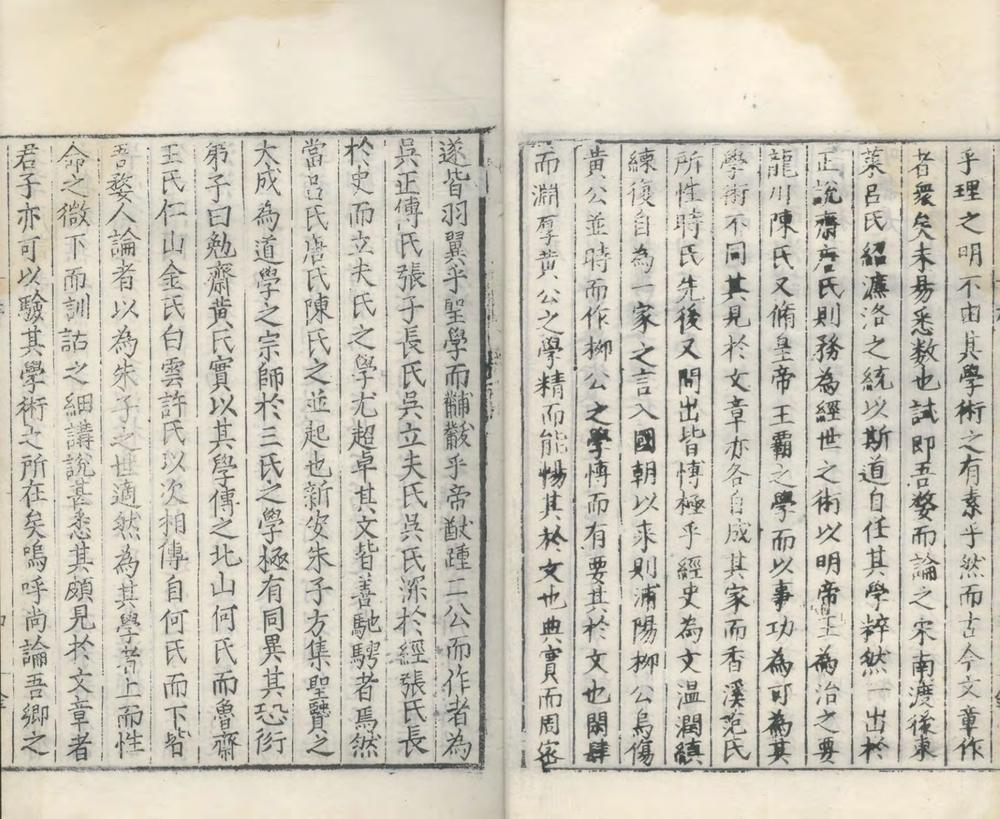 乎理之明不由其學術之有素乎然而古今文章作
者衆矣未易悉數也試即吾婺而論之宋南渡後東
萊呂氏紹濂洛之統以斯道自任其學粹然一出於
正說齋唐氏則務為經世之術以明帝王為治之要
龍川陳氏又脩皇帝王霸之學而以事功為可為其
學術不同其見於文章亦各自成其家而香溪范氏
所性時氏先後又間出皆博極乎經史為文温潤縝
練復自為一家之言入國朝以來則浦陽柳公烏傷
黄公並時而作柳公之學博而有要其於文也閎肆
而淵厚黄公之學精而能暢其於文也典實而周密
遂皆羽翼乎聖學而黼黻乎帝猷踵二公而作者為
吳正傳氏張子長氏吳立夫氏吳氏深於經張氏長
於史而立夫氏之學尤超卓其文皆善馳騁者焉然
當呂氏唐氏陳氏之並起也新安朱子方集聖賢之
大成為道學之宗師於三氏之學極有同異其恐衍
弟子曰勉齋黄氏實以其學傳之北山何氏而魯齋
王氏仁山金氏白雲許氏以次相傳自何氏而下皆
吾婺人論者以為朱子之世適然為其學者上而性
命之微下而訓詁之細講說甚悉其頗見於文章者
君子亦可以驗其學術之所在矣嗚呼尚論吾鄉之